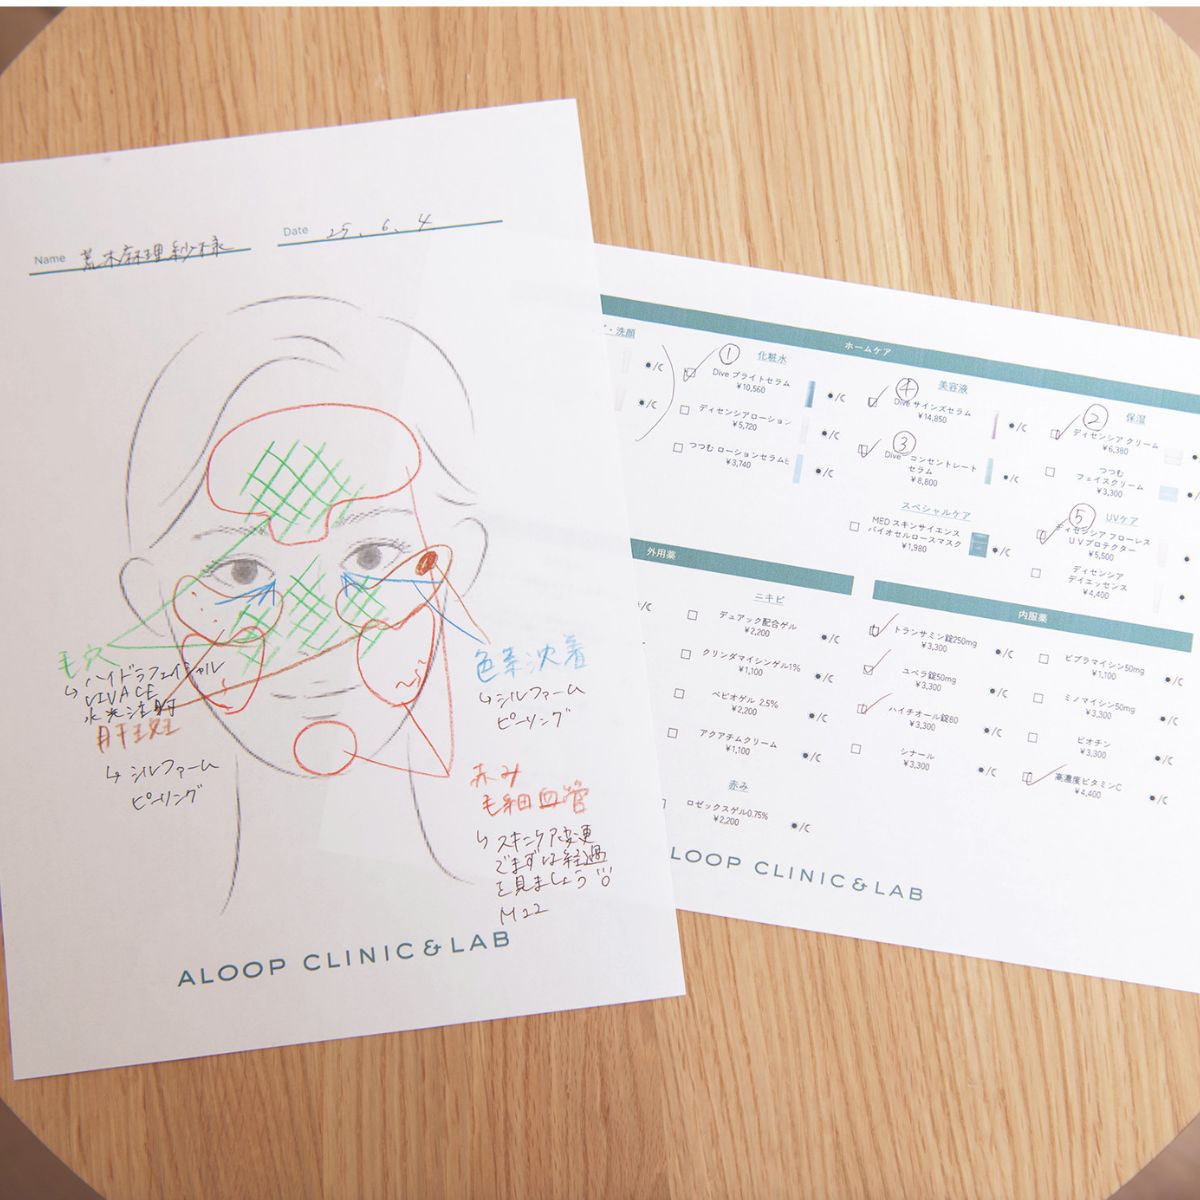 Name 荒木麻理紗様
Date 25.6.4
毛穴
↳ ハイドラフェイシャル
VIVACE
水光注射
肝斑
↳ シルファーム
ピーリング
色素沈着
↳ シルファーム
ピーリング
赤み
毛細血管
↳ スキンケア変更
でまずは経過
を見ましょう!!!
M22
ALOOP CLINIC & LAB
ホームケア
・洗顔
●/C
●/C
① 化粧水
Dive ブライトセラム
¥10,560
●/C
ディセンシアローション
¥5,720
●/C
つつむ ローションセラムE
¥3,740
●/C
美容液
④
Dive サインズセラム
¥14,850
●/C
③
Dive コンセントレート
セラム
¥8,800
●/C
スペシャルケア
MED スキンサイエンス
バイオセルロースマスク
¥1,980
●/C
保湿
②
ディセンシア クリーム
¥6,380
つつむ
フェイスクリーム
¥3,300
UVケア
⑤
ディセンシア フローレス
UVプロテクター
¥5,500
ディセンシア
デイエッセンス
¥4,400
外用薬
/C
ニキビ
デュアック配合ゲル
¥2,200
●/C
クリンダマイシンゲル1%
¥1,100
●/C
ベピオゲル 2.5%
¥2,200
●/C
アクアチムクリーム
¥1,100
●/C
赤み
ロゼックスゲル0.75%
¥2,200
●/C
内服薬
トランサミン錠250mg
¥3,300
●/C
ユベラ錠50mg
¥3,300
●/C
ハイチオール錠80
¥3,300
●/C
シナール
¥3,300
●/C
ビブラマイシン50mg
¥1,100
●/C
ミノマイシン50mg
¥3,300
●/C
ビオチン
¥3,300
●/C
高濃度ビタミンC
¥4,400
●/C
LOOP CLINIC & LAB